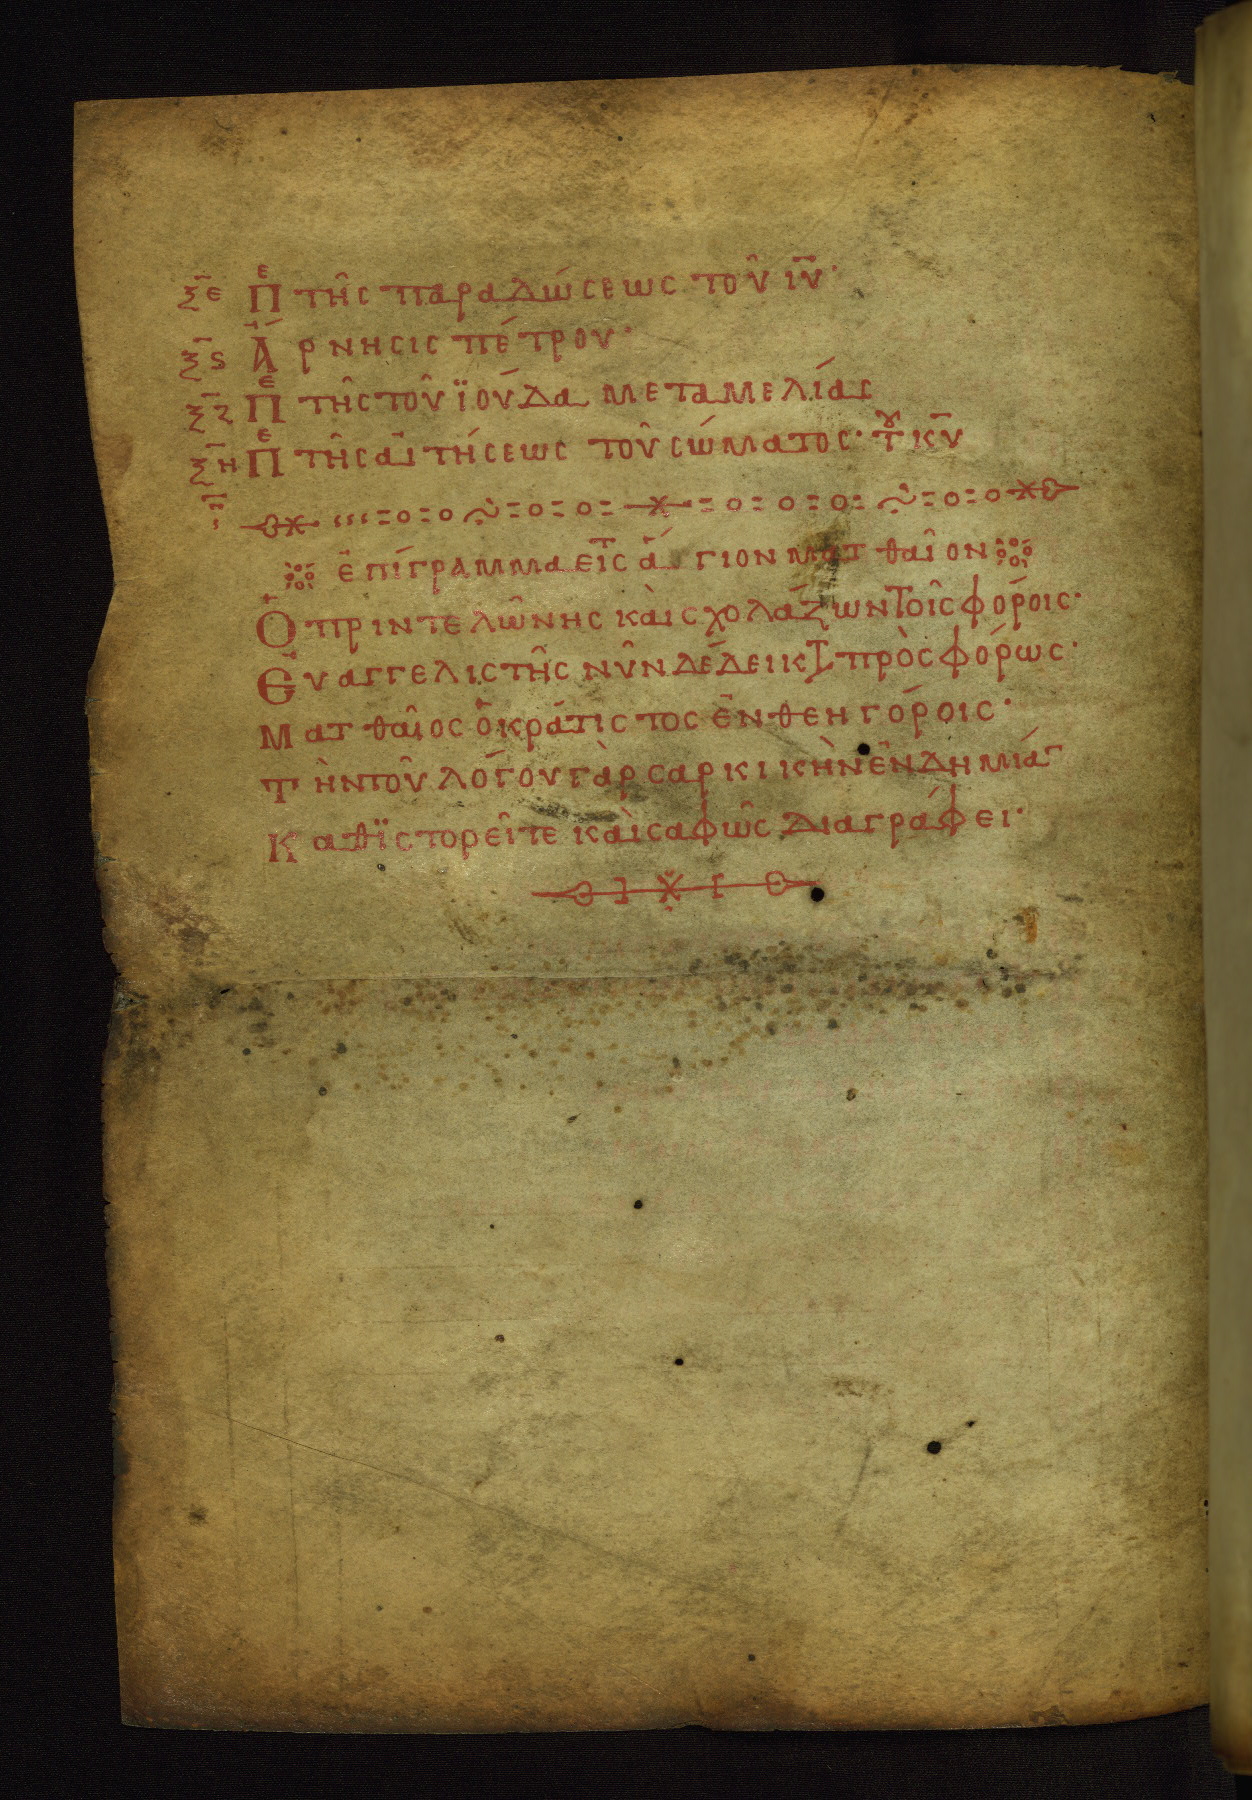 ξε Πε τῆς παραδώσεως τοῦ ιυ·
ξς Ἄρνησις πέτρου·
ξζ Πε τῆς τοῦ ϊούδα μεταμελίας
ξη Πε τῆς αἰτήσεως τοῦ σώματος· τοῦ κυ
ἐπίγραμμα εἰς ἅγιον ματθαῖον
Ὁ πρὶν τελώνης καὶ σχολάζων τοῖς φόροις·
Εὐαγγελιστῆς νῦν δέδεικται πρὸς φόρως·
Ματθαῖος ὁ κράτιστος ἐν θεηγόροις·
Τὴν τοῦ λόγου γὰρ σαρκικὴν ἐνδημίαν
Καθϊστορεῖ τε καὶ σαφῶς διαγράφει·